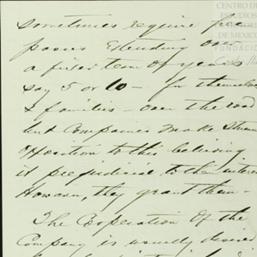 sometimes require free
passes extending over
a period of years
say 5 or 10 — for themselves
& families — over the road
but Companies make strong
opposition to this believing
it prejudicial to the interes
However, they grant them —
The Cooperation of the
Company is usually desire
CENTRO DE